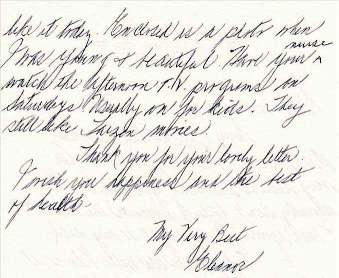 like it today. Enclosed is a photo when
I was young & beautiful. Have your nurse
watch the Afternoon T.V. programs on
Saturdays Usually on for kids. They
still like Tarzan movies.
Thank you for your lovely letter.
I wish you happiness and the best
of health.
My Very Best
Eleanor